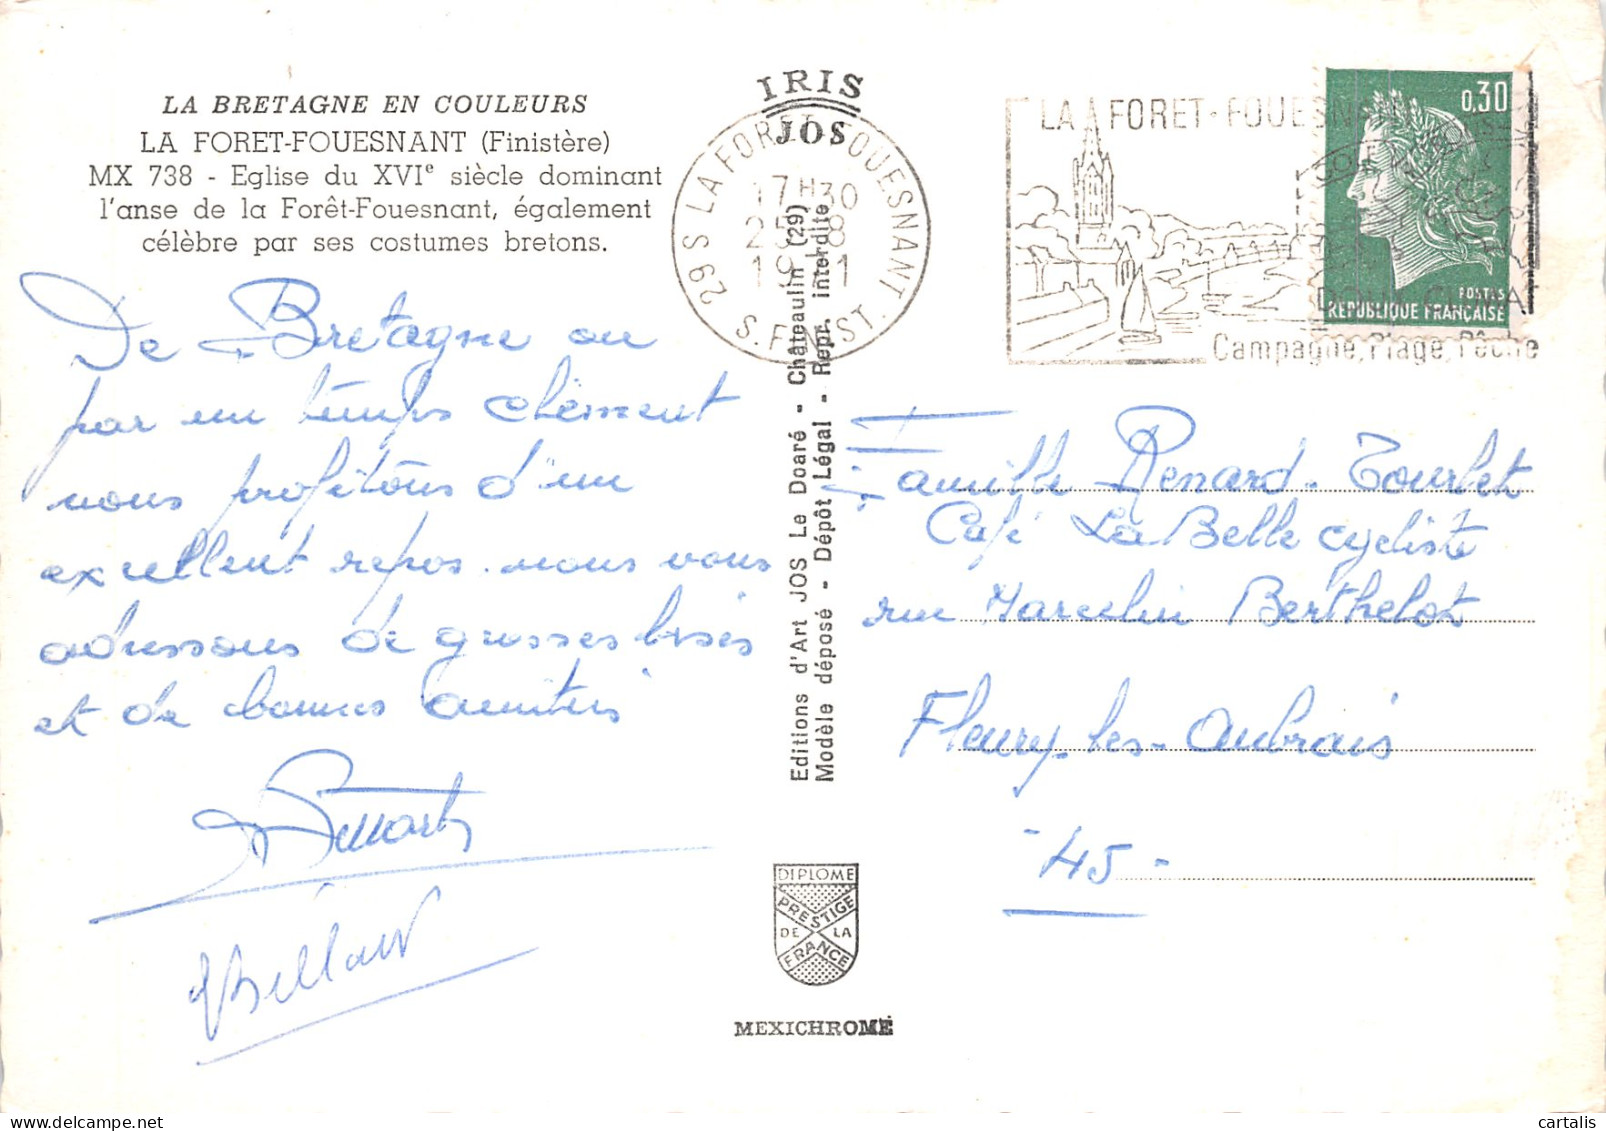 LA BRETAGNE EN COULEURS
LA FORET-FOUESNANT (Finistère)
MX 738 - Eglise du XVIe siècle dominant
l'anse de la Forêt-Fouesnant, également
célèbre par ses costumes bretons.
De Bretagne ou
par un temps clément
nous profitons d'un
excellent repos. nous vous
adressons de grosses bises
et de bonnes amitiés
IRIS
JOS
29S LA FORET FOUESNANT
17H30
25 - 8
S. FINIST.
Editions d'Art JOS Le Doaré - Châteaulin (29)
Modèle déposé - Dépôt Légal - Repr. interdite
DIPLOME
PRESTIGE
DE LA
FRANCE
MEXICHROME
LA FORET-FOUESNANT
Campagne, Plage, Pêche
0,30
POSTES
REPUBLIQUE FRANÇAISE
Famille Renard-Tourlet
Café La Belle cycliste
rue Marcelin Berthelot
Fleury-les-Aubrais
- 45 -
cartalis